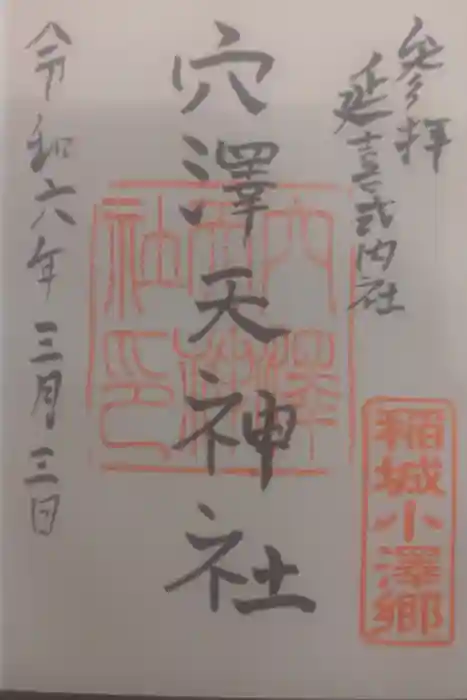 参拝
延喜式内社
穴澤天神社
穴澤
天神
社印
稲城小澤郷
令和六年三月三日